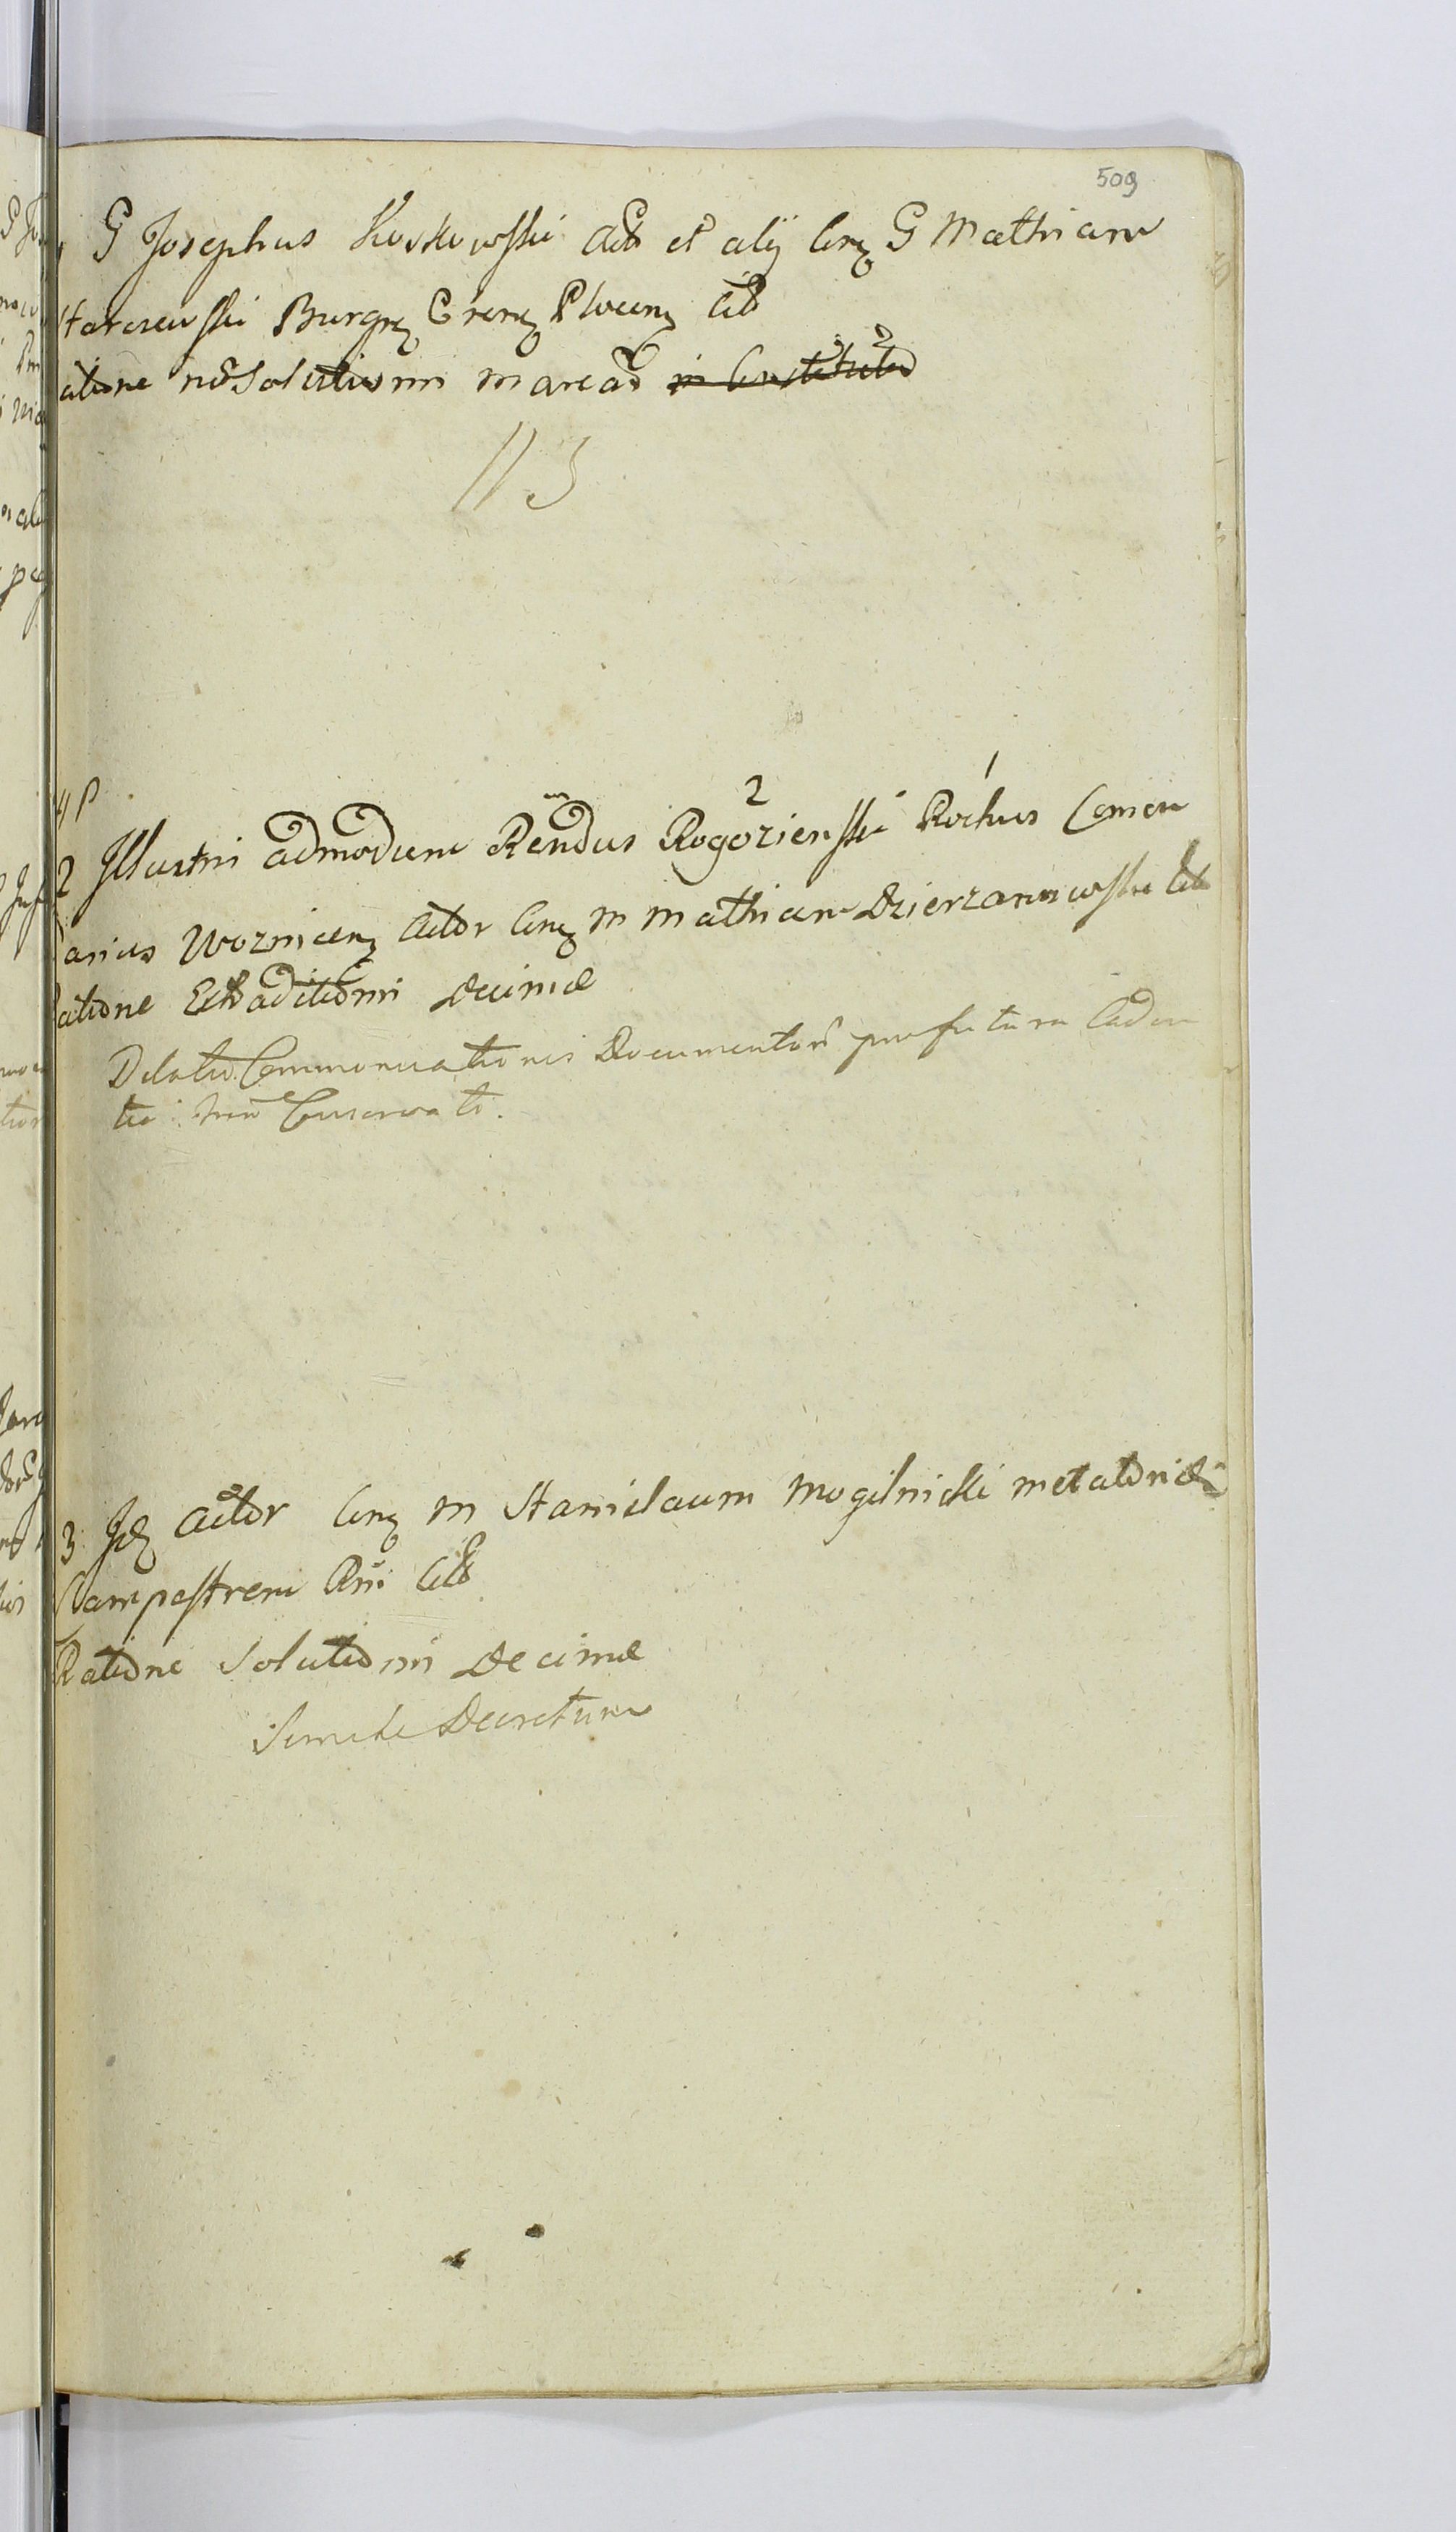 509
1 G Josephus Koskowski Act et alij Cnq G Mathiam
Starorewski Burgr Crens Plocens Cit
atione nō Solutionis marcar in Constitutio
113
4 P
2 1
2 Illustris admodum Rendus Rogozienski Rochus Comen
arius Wozniceng Actor Cnq M Mathiam Dzierzanowski Cit
atione Extraditionis Decimæ
Dilatio Communicationis Documentorū pro futura Caden
tia Conservati.
3 Id Actor Cnq M Stanislaum Mogilnicki metatorem
Campestrem Rni Cit
Ratione Solutionis Decimæ
Decretum